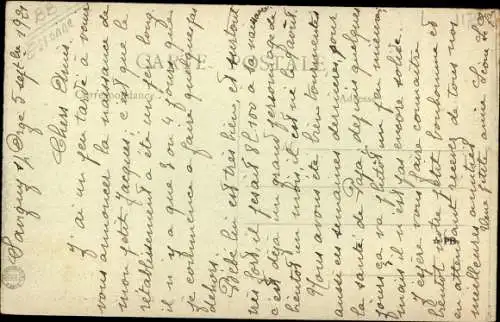 Savigny s/ Orge 5 septbre 1921
Chers Amis.
J'ai un peu tardé à vous
vous annoncer la naissance de
mon petit Jacques; c'est que le
rétablissement a été un peu long.
il n'y a que 3 ou 4 jours que
je commence à faire quelques pas
dehors.
Bébé lui est très bien, et surtout
très fort, il pesait 8 l 500 à la naissance
c'est déjà un grand personnage de
bientôt un mois, il est né le août.
Nous avons été bien tourmentés
aussi ces semaines dernières, pour
la santé de Papa, depuis quelques
jours ça va plutôt un peu mieux
mais il n'est pas encore solide.
J'espère vous faire connaître
bientôt notre petit bonhomme et
en attendant recevez de tous nos
meilleures amitiés
Votre petite amie
CARTE POSTALE
Correspondance
Adresse